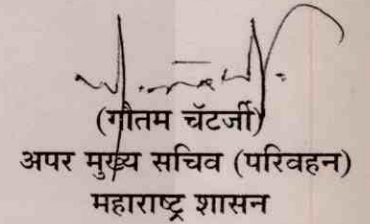 (गौतम चॅटर्जी)
अपर मुख्य सचिव (परिवहन)
महाराष्ट्र शासन